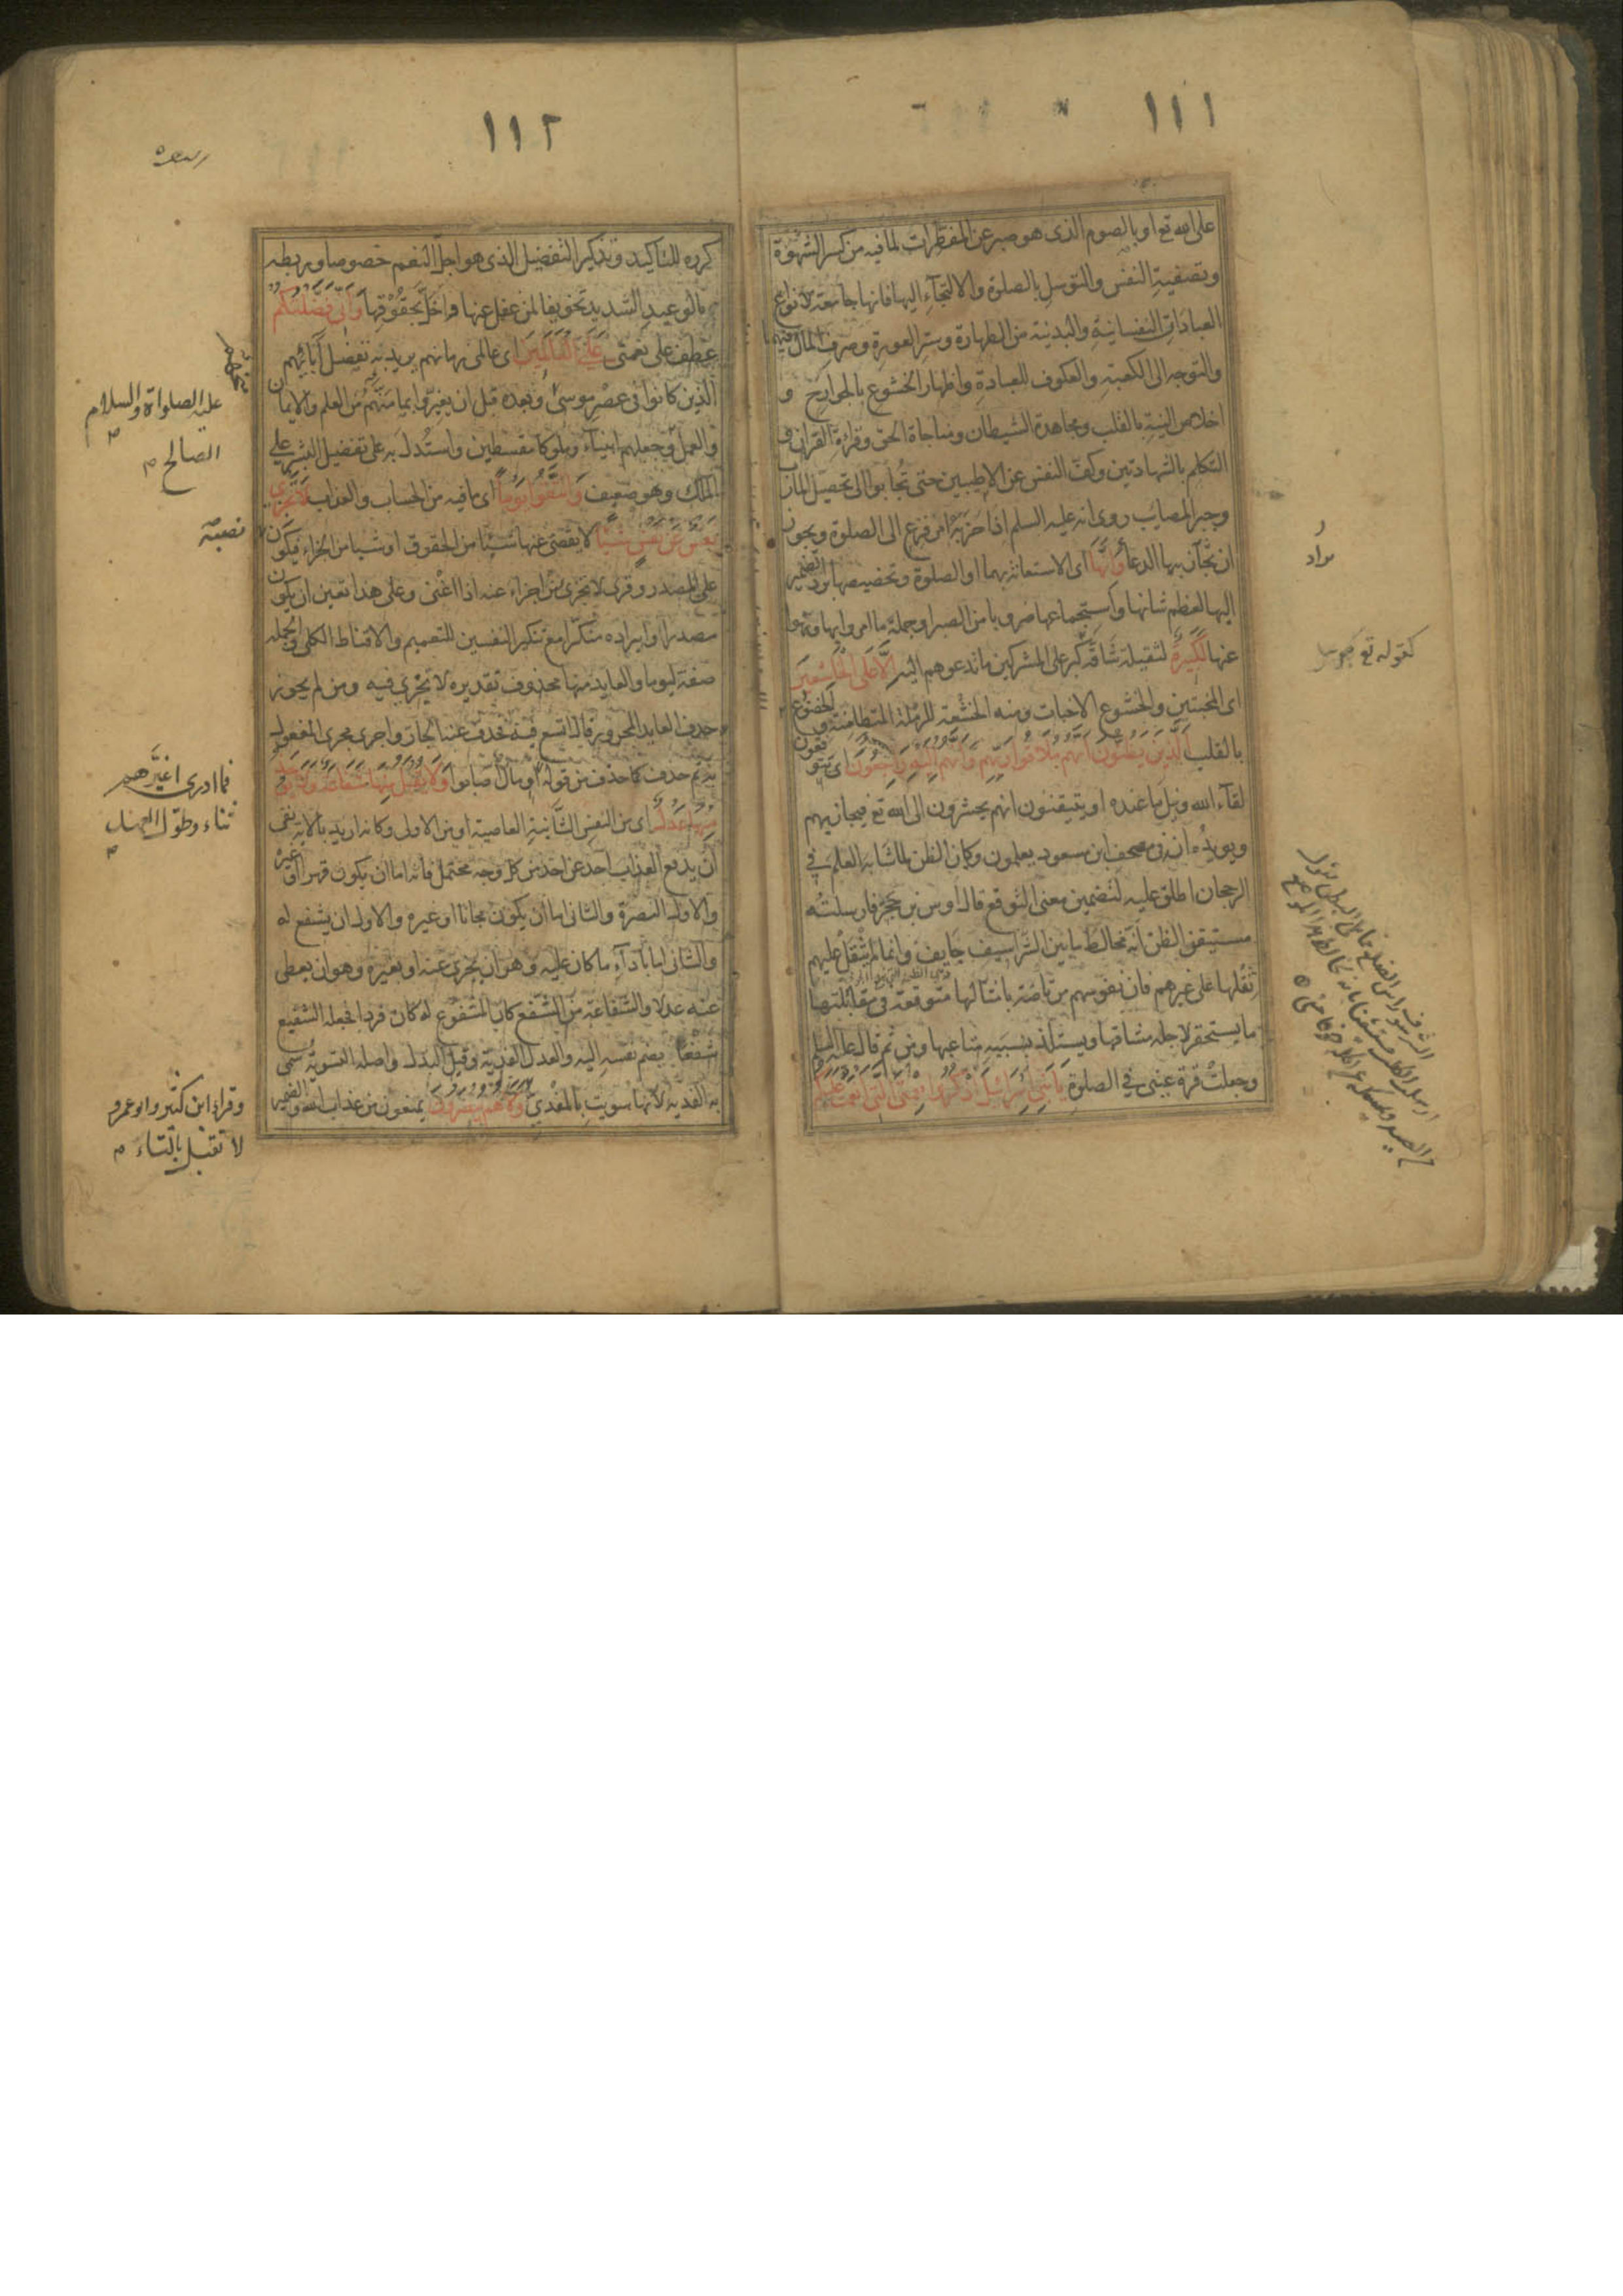 ١١١
على الله تع او بالصوم الذى هو صبر عن المفطرات لما فيه من كسر الشهوة
وتصفية النفس والتوسل بالصلوة والالتجآء اليها فانها جامعة لانواع
العبادات النفسانية والبدنية من الطهارة وستر العورة وصرف المال فيهما
والتوجه الى الكعبة والعكوف للعبادة واظهار الخشوع بالجوارح و
اخلاص النية بالقلب ومجاهدة الشيطان ومناجاة الحق وقراءة القران و
التكلم بالشهادتين وكف النفس عن الاطيبين حتى تجابوا الى تحصيل المآرب
وجبر المصايب روى انه عليه السلم اذا حزبه امر فزع الى الصلوة ويجوز
ان يراد بها الدعا وَاِنَّهَا اى الاستعانة بهما او الصلوة وتخصيصها برد الضمير
اليها لعظم شانها واستجماعها ضروبا من الصبر او جملة ما امروا بها ونهوا
عنها لَكَبِيرَةٌ لثقيلة شاقة كبر على المشركين ما تدعوهم اليه اِلَّا عَلَى الْخَاشِعِينَ
اى المخبتين والخشوع الاخبات ومنه الخشعة للرملة المتطامنة والخضوع
بالقلب اَلَّذِينَ يَظُنُّونَ اَنَّهُمْ مُلَاقُوا رَبِّهِمْ وَاَنَّهُمْ اِلَيْهِ رَاجِعُونَ اى يتوقعون
لقآء الله ونيل ما عنده او يتيقنون انهم يحشرون الى الله تع فيجازيهم
ويويده ان فى مصحف ابن مسعود يعلمون وكان الظن لما شابه العلم فى
الرجحان اطلق عليه لتضمين معنى التوقع قال اوس بن حجر فارسلته
مستيقن الظن انه مخالط ما بين الشراسيف جايف وانما لم يثقل عليهم
ثقلها على غيرهم فان نفوسهم مرتاضة بامثالها متوقعة فى مقابلتها
ما يستحقر لاجله مشاقها ويستلذ بسببه متاعبها ومن ثم قال عليه السلم
وجعلت قرة عينى فى الصلوة يَا بَنِي اِسْرَائِيلَ اذْكُرُوا نِعْمَتِيَ الَّتِي اَنْعَمْتُ عَلَيْكُمْ
كقوله تع
١١٢
كرره للتاكيد وتذكير التفضيل الذى هو اجل النعم خصوصا وربطه
بالوعيد الشديد تخويفا لمن غفل عنها واخل بحقوقها وَاَنِّي فَضَّلْتُكُمْ
عطف على نعمتى عَلَى الْعَالَمِينَ اى عالمى زمانهم يريد به تفضيل آبائهم
الذين كانوا فى عصر موسى وبعده قبل ان يغيروا بما منحهم من العلم والايمان
والعمل وجعلهم انبيآء وملوكا مقسطين واستدل به على تفضيل البشر على
الملك وهو ضعيف وَاتَّقُوا يَوْمًا اى ما فيه من الحساب والعذاب لَا تَجْزِي
نَفْسٌ عَنْ نَفْسٍ شَيْئًا لا يقضى عنها شيئا من الحقوق او شيا من الجزاء فيكون
على المصدر وقرئ لا تجزئ من اجزاء عنه اذا اغنى وعلى هذا تعين ان يكون
مصدرا وايراده منكرا مع تنكير النفسين للتعميم والاقناط الكلى والجملة
صفة ليوما والعايد منها محذوف تقديره لا تجزى فيه ومن لم يجوز
حذف العايد المجرور قال اتسع فيه فحذف عنه الجار واجرى مجرى المفعول
به ثم حذف كما حذف من قوله او مال اصابوا وَلَا يُقْبَلُ مِنْهَا شَفَاعَةٌ وَلَا يُؤْخَذُ
مِنْهَا عَدْلٌ اى من النفس الثانية العاصية او من الاولى وكانه اريد بالاية نفى
ان يدفع العذاب احد عن احد من كل وجه محتمل فانه اما ان يكون قهرا او غيره
والاول النصرة والثانى اما ان يكون مجانا او غيره والاول ان يشفع له
والثانى اما بادآء ما كان عليه وهو ان يجزى عنه او بغيره وهو ان يعطى
عنه عدلا والشفاعة من الشفع كان المشفوع له كان فردا فجعله الشفيع
شفعا بضم نفسه اليه والعدل الفدية وقيل البدل واصله التسوية سمى
به الفدية لانها سويت بالمفدى وَلَا هُمْ يُنْصَرُونَ يمنعون من عذاب الله والضمير
عليه الصلواة والسلام
الصالح
نصبه
فما ادرى اغيرهم
ثناء وطول العهد
وقرا ابن كثير وابو عمرو
لا تقبل بالتاء